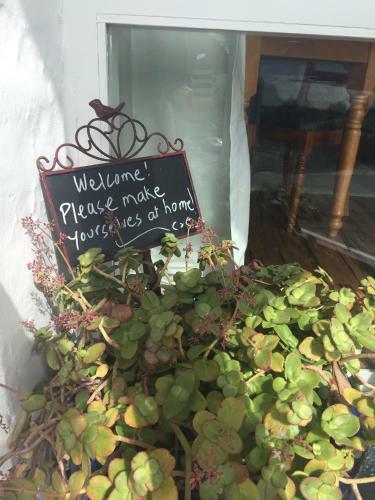 Welcome!
Please make
yourselves at home